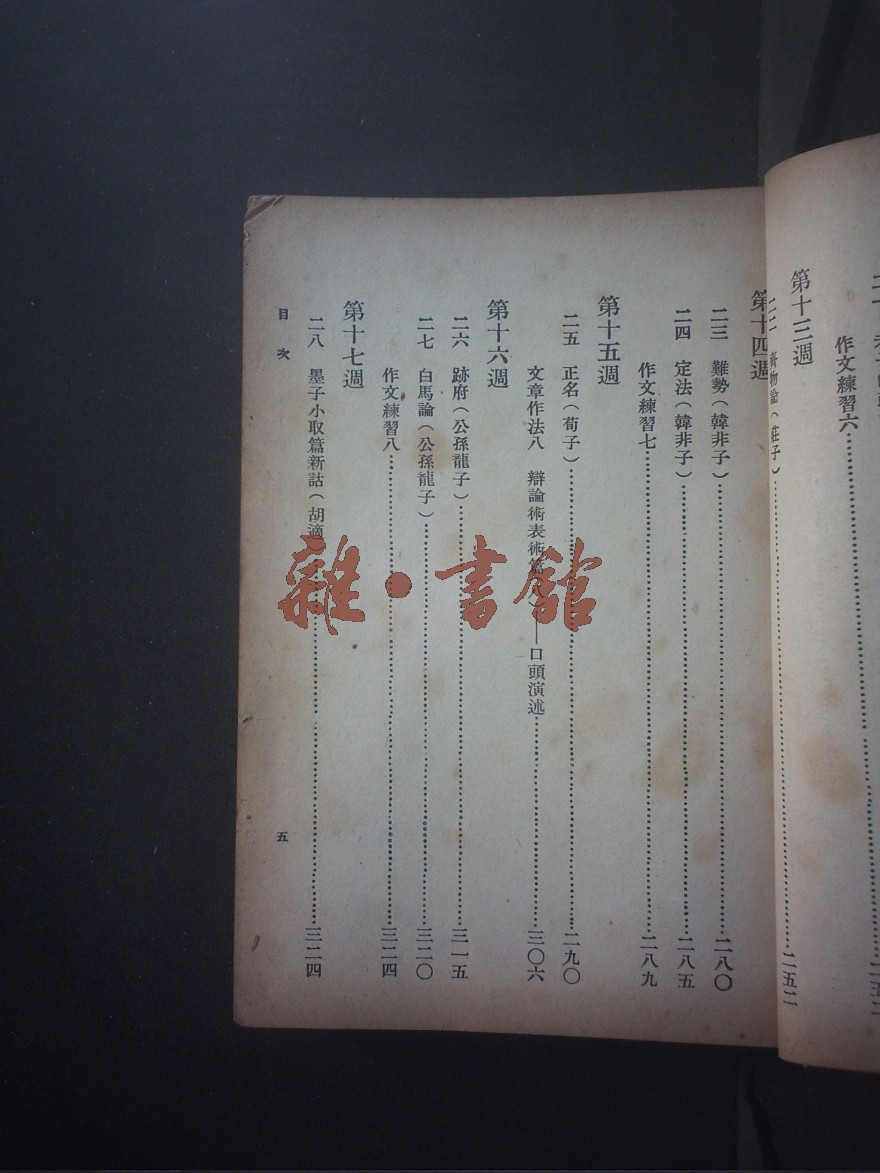 作文練習六
第十三週
二二 齊物論（莊子）……二五二
第十四週
二三 難勢（韓非子）……二八〇
二四 定法（韓非子）……二八五
作文練習七……二八九
第十五週
二五 正名（荀子）……二九〇
文章作法八 辯論術表術篇 口頭演述……三〇六
第十六週
二六 跡府（公孫龍子）……三一五
二七 白馬論（公孫龍子）……三二〇
作文練習八……三二四
第十七週
二八 墨子小取篇新詁（胡適）……三二四
目次
五
雜·書館